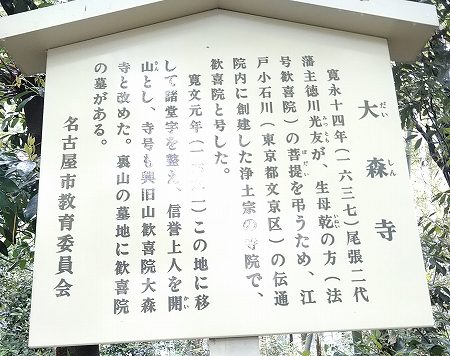 大森寺
だいしんじ
寛永十四年（一六三七）尾張二代
藩主徳川光友が、生母乾の方（法
みつとも
いぬい
号歓喜院）の菩提を弔うため、江
ぼだい
戸小石川（東京都文京区）の伝通
院内に創建した浄土宗の寺院で、
歓喜院と号した。
寛文元年（一六六一）この地に移
して諸堂宇を整え、信誉上人を開
かい
山とし、寺号も興旧山歓喜院大森
さん
寺と改めた。裏山の墓地に歓喜院
の墓がある。
名古屋市教育委員会